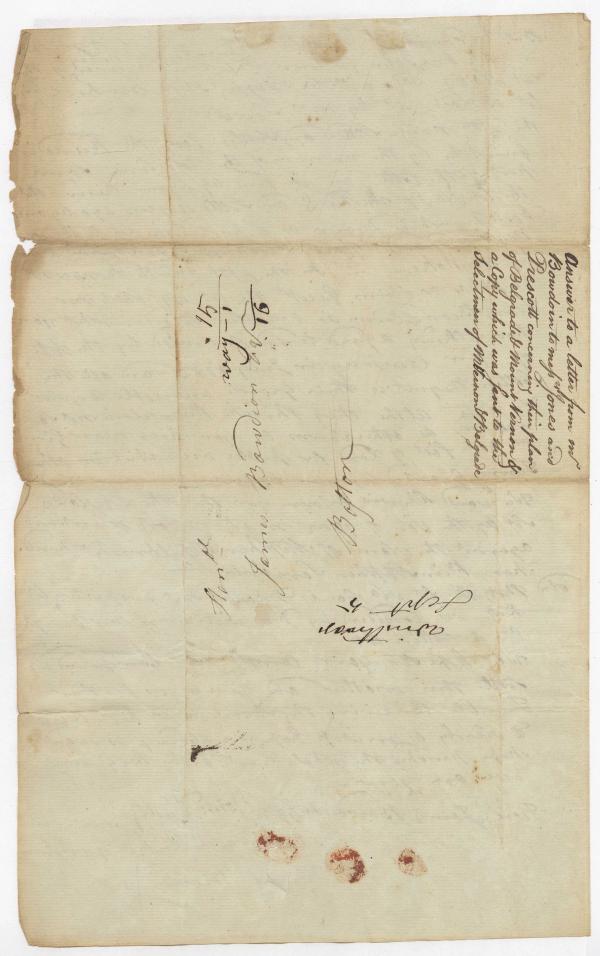 Answer to a letter from mr
Bowdoin to messrs Jones and
Prescott concerning their plan
of Belgrade & Mount Vernon &
a Copy which was sent to the
Selectmen of Mt Vernon & Belgrade
Winthrop
Sept. 5
Honbl.
James Bowdoin Esqr
Boston